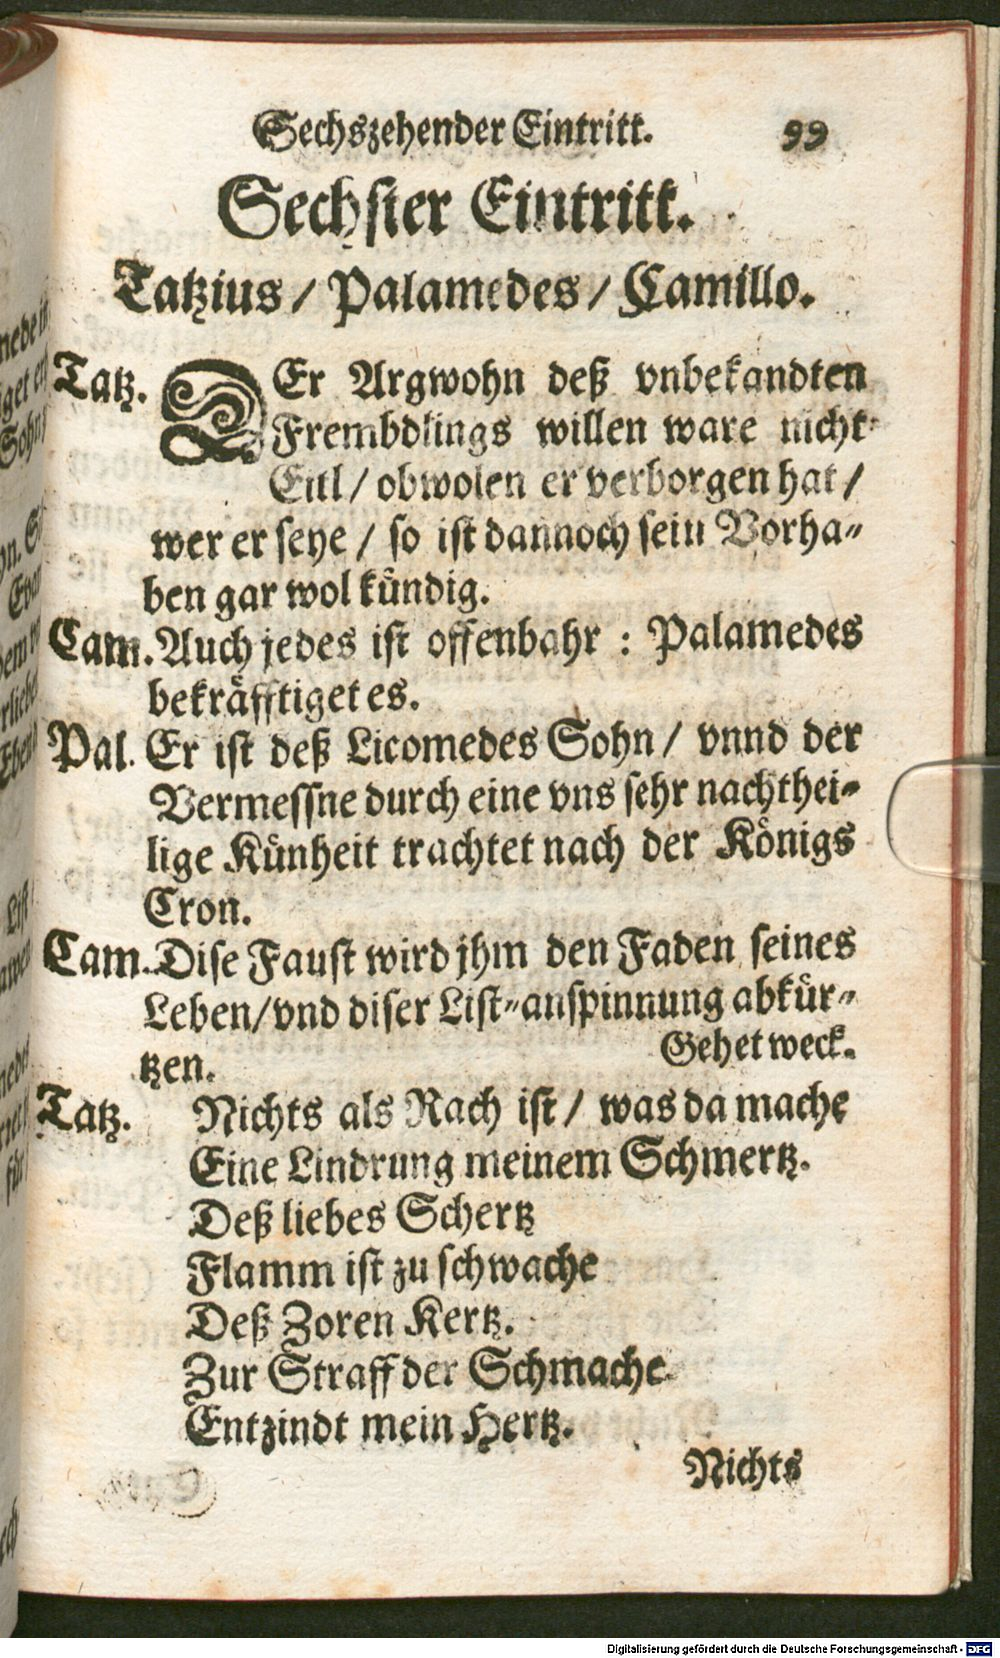 Sechszehender Eintritt. 99
Sechster Eintritt.
Tatzius / Palamedes / Camillo.
Tatz. DEr Argwohn deß vnbekandten
Frembdlings willen ware nicht
Eitl / obwolen er verborgen hat /
wer er seye / so ist dannoch sein Vorha-
ben gar wol kündig.
Cam. Auch jedes ist offenbahr : Palamedes
bekräfftiget es.
Pal. Er ist deß Licomedes Sohn / vnnd der
Vermessne durch eine vns sehr nachthei-
lige Künheit trachtet nach der Königs
Cron.
Cam. Dise Faust wird jhm den Faden seines
Leben / vnd diser List-anspinnung abkür-
tzen. Gehet weck.
Tatz. Nichts als Rach ist / was da mache
Eine Lindrung meinem Schmertz.
Deß liebes Schertz
Flamm ist zu schwache
Deß Zoren Kertz.
Zur Straff der Schmache
Entzindt mein Hertz.
Nichts
Digitalisierung gefördert durch die Deutsche Forschungsgemeinschaft - DFG